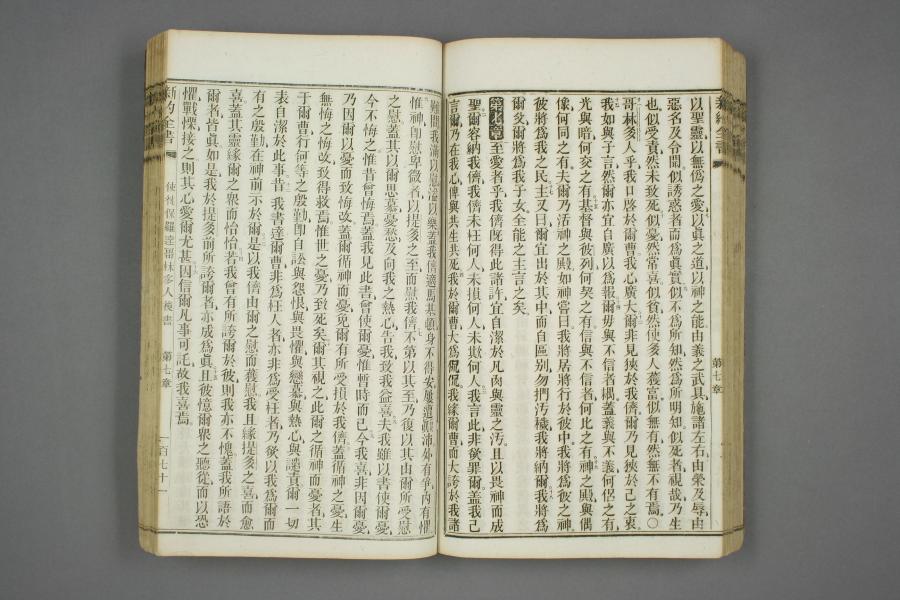 新約全書
第七章
以聖靈以無僞之愛以眞之道以神之能由義之武具施諸左右由榮及辱由
惡名及令聞似誘惑者而爲眞實似不爲所知然爲所明知似死者視哉乃生
也似受責然未致死似憂然常喜似貧然使多人獲富似無有然無不有焉○
哥林多人乎我口啓於爾曹我心廣大爾非見狹於我儕爾乃見狹於己之衷
我如與子言然爾亦宜自廣以爲報爾毋與不信者耦蓋義與不義何侶之有
光與暗何交之有基督與彼列何矣之有信與不信者何比之有神之殿與偶
像何同之有夫爾乃活神之殿如神嘗曰我將居將行於彼中我將爲彼之神
彼將爲我之民主又曰爾宜出於其中而自區别勿捫汚穢我將納爾我將爲
爾父爾將爲我子女全能之主言之矣
第七章至愛者乎我儕旣得此諸許宜自潔於凡肉與靈之汚且以畏神而成
聖爾容納我儕我儕未枉何人未損何人未欺何人我言此非欲罪爾蓋我已
言爾乃在我心俾與共生共死我於爾曹大爲侃侃我緣爾曹而大誇於我諸
難間我滿以慰溢以樂蓋我儕適馬基頓身不得安屢遭顚沛外有爭內有懼
惟神卽慰卑微者以提多之至而慰我儕不第以其至乃復以其由爾所受慰
之慰蓋其以爾思慕憂愁及向我之熱心告我致我益喜夫我雖以書使爾憂
今不悔之惟昔曾悔焉蓋我見此書曾使爾憂惟暫時而已今我喜非因爾憂
乃因爾以憂而致悔改蓋爾循神而憂免爾有所受損於我儕蓋循神之憂生
無悔之悔改致得救焉惟世之憂乃致死矣爾其視之此爾之循神而憂者其
于爾曹行何等之殷勤卽自訟與怨恨與畏懼與戀慕與熱心與譴責爾一切
表自潔於此事昔我書達爾曹非爲枉人者亦非爲受枉者乃欲以我爲爾而
有之殷勤在神前示於爾是以我儕由爾之慰而獲慰我且緣提多之喜而愈
喜蓋其靈緣爾之衆而怡怡若我曾有所誇爾於彼則我亦不愧蓋我所語於
爾者皆眞如是我於提多前所誇爾者亦成爲眞且彼憶爾衆之聽從而以恐
懼戰慄接之則其心愛爾尤甚因信爾凡事可託故我喜焉
新約全書
使徒保羅達哥林多人後書
第七章
一百七十一